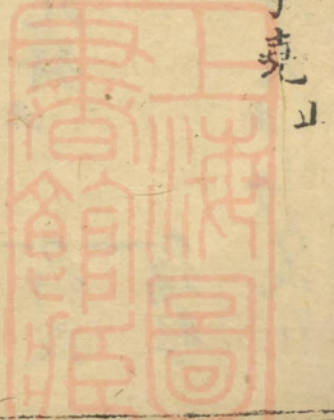 堯
上海圖
書館藏